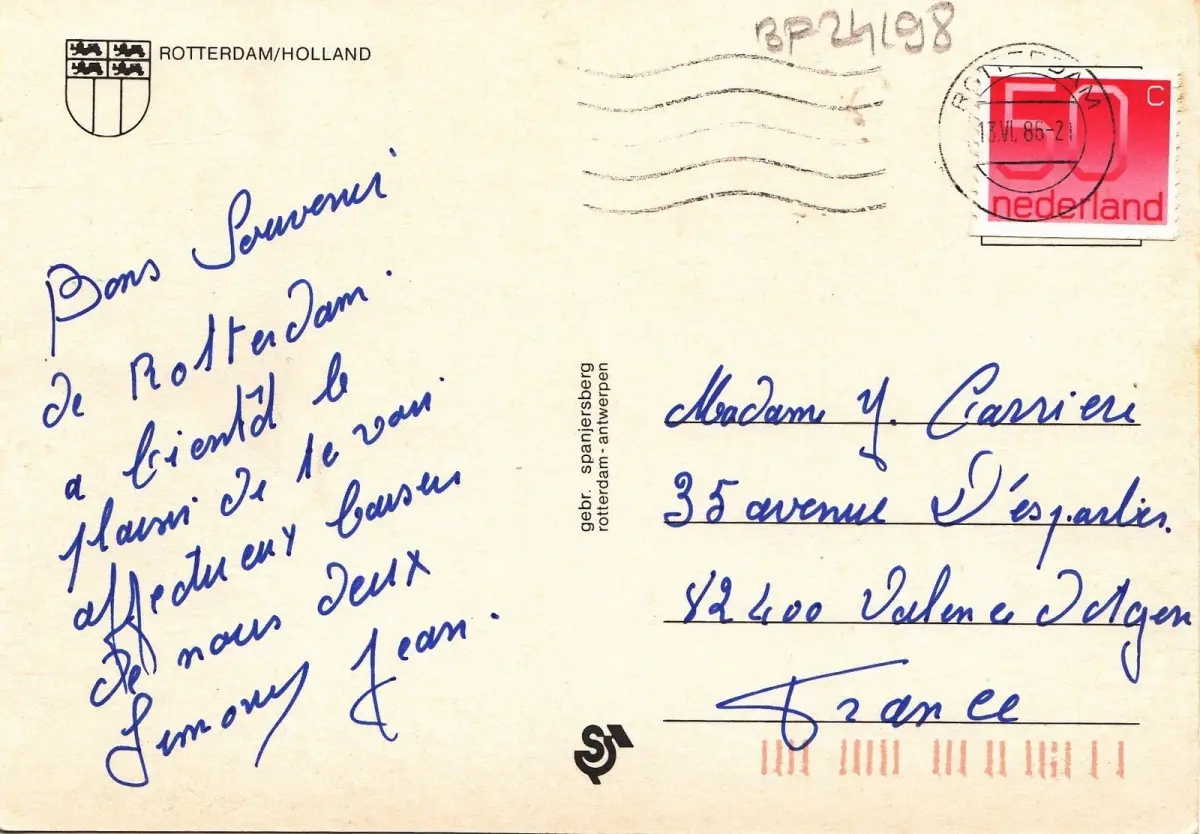 BP24198
ROTTERDAM/HOLLAND
ROTTERDAM
13.VI.86-21
50 C
nederland
Bons Souvenir
de Rotterdam.
a bientôt le
plaisir de te voir
affectueux baisers
de nous deux
Simone Jean.
gebr. spanjersberg
rotterdam - antwerpen
Madame Y. Carriere
35 avenue D'
82400 Valence D'Agen
France